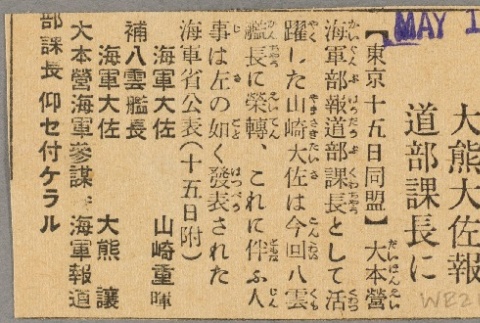 MAY 1
大熊大佐報
道部課長に
【東京十五日同盟】大本營
海軍部報道部課長として活
躍した山崎大佐は今回八雲
艦長に榮轉、これに伴ふ人
事は左の如く發表された
海軍省公表(十五日附)
海軍大佐 山崎重暉
補八雲艦長
海軍大佐 大熊讓
大本營海軍參謀、海軍報道
部課長 仰セ付ケラル